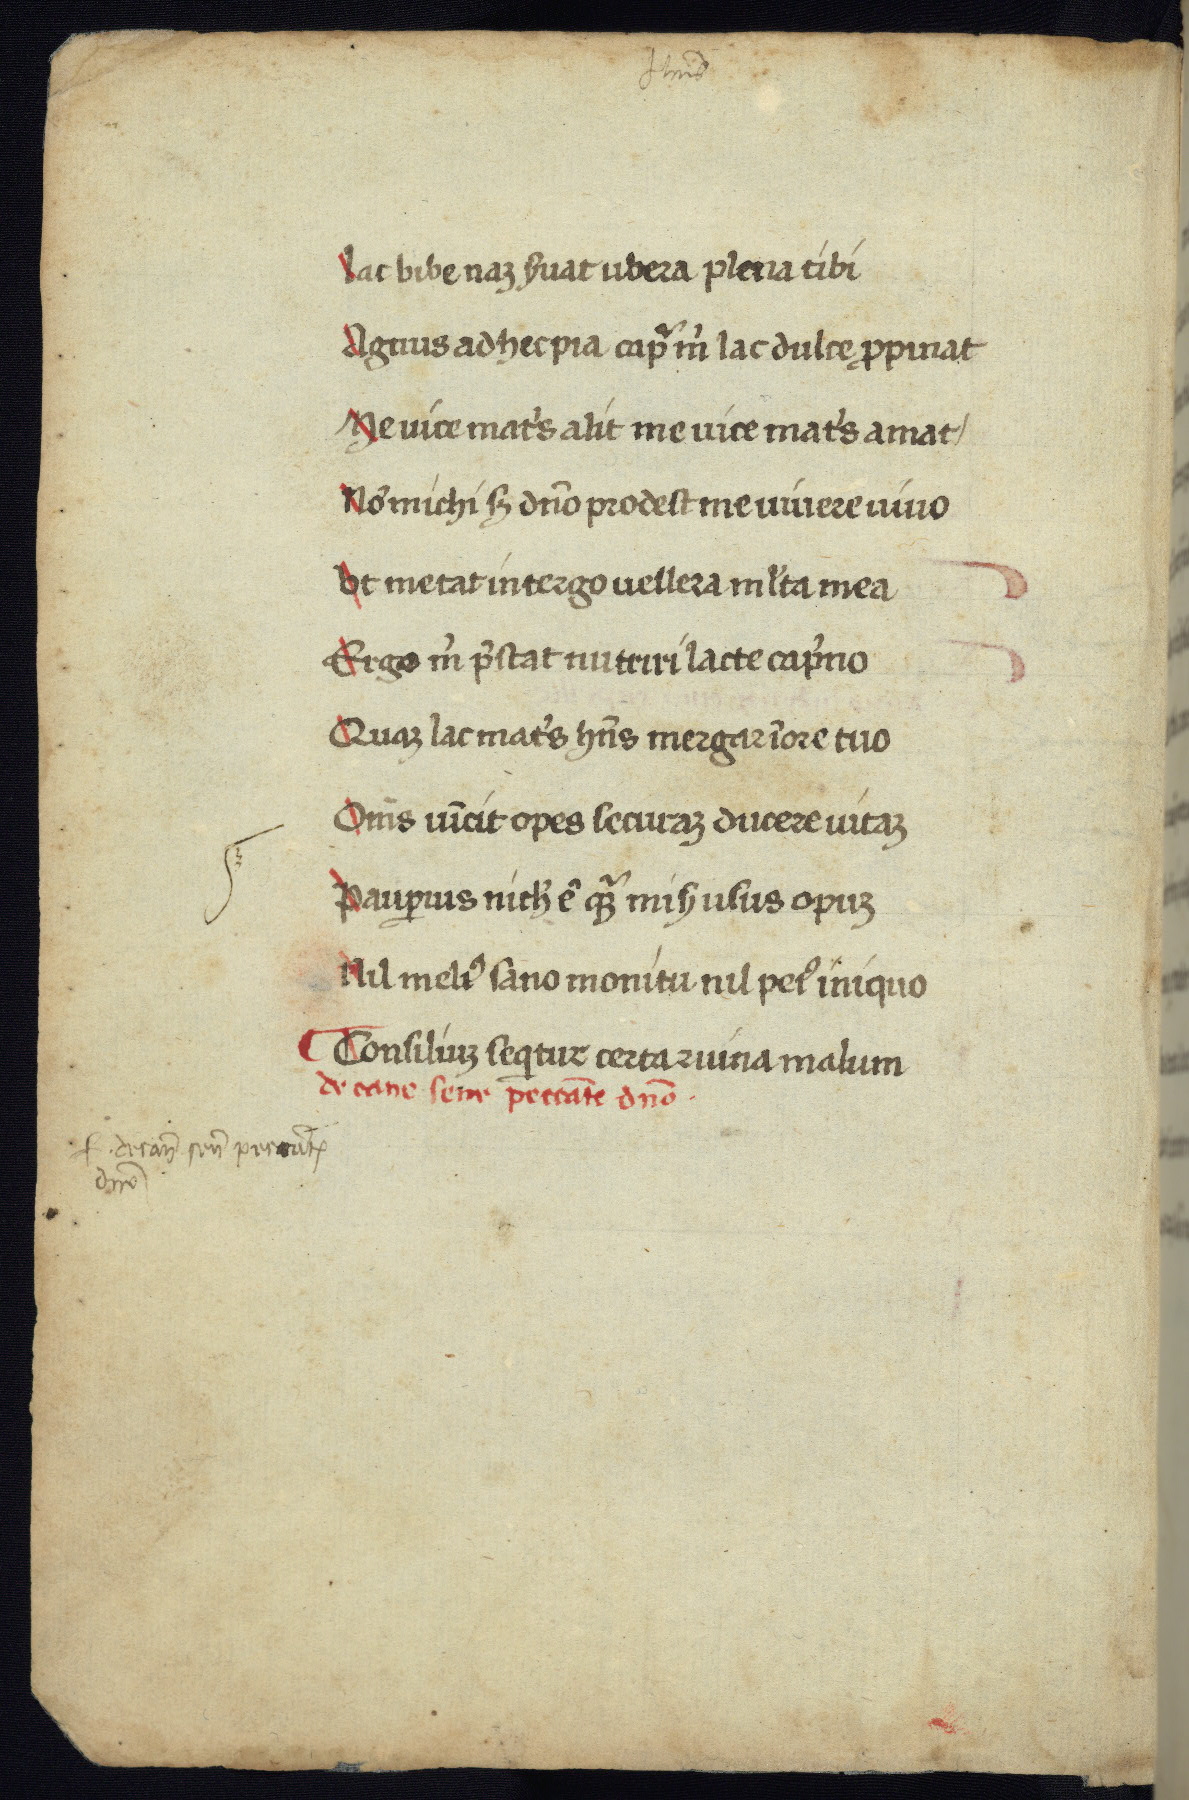 lac bibe naꝫ s̄uat ubera plena tibi
Agnus ad hec pia cap̃ m̃ lac dulce ꝓpinat
Me uice mat's alit me uice mat's amat/
Nō michi sꝫ dño prodest me uiuere uiuo
Vt metat in tergo uellera ml'ta mea
Ergo m̃ p̃stat nutriri lacte cap'no
Quaꝫ lac mat's hñs mergar ī ore tuo
Om̃s uīcit opes securaꝫ ducere uitaꝫ
Pauꝑius nich' ē qᷓꝫ mis̄ usus opuꝫ
Nil meliꝰ sano monitu nil peiꝰ iniquo
Consiliuꝫ seqͥtur certa ruina malum
de cane sene peccāte dño.
de cañ señ peccāt
dño